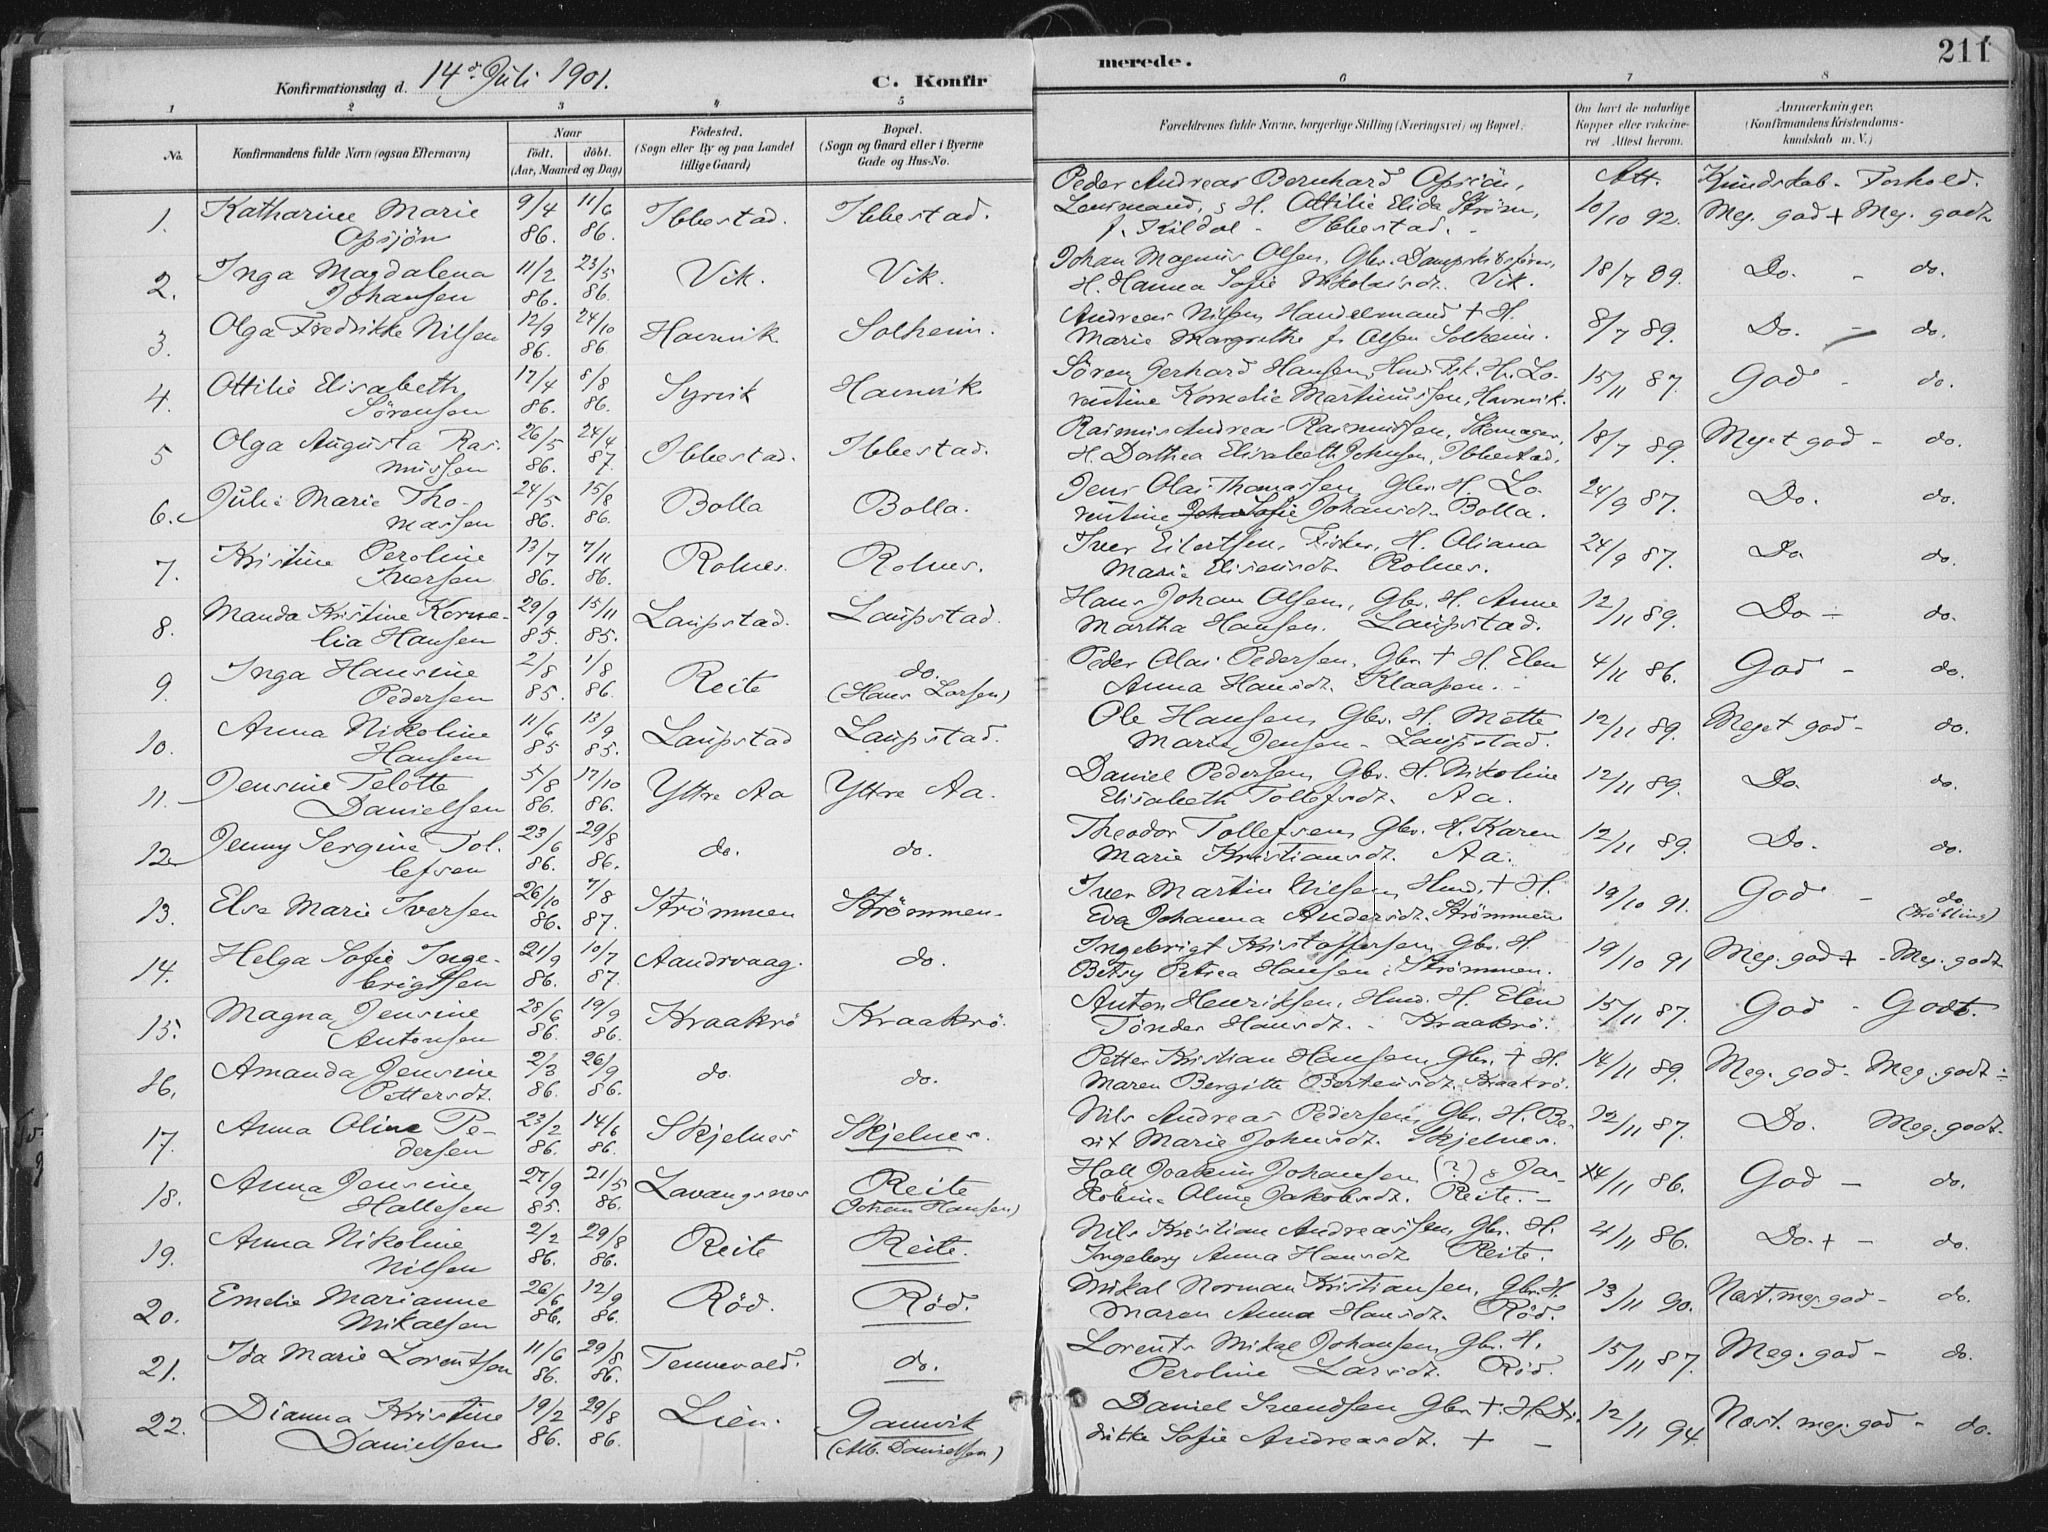 211
Konfirmationsdag d. 14de Juli 1901. C. Konfir merede.
1 2 3 4 5 6 7 8
No. Konfirmandens fulde Navn (ogsaa Efternavn) Naar født. døbt. (Aar, Maaned og Dag) Fødested. (Sogn eller By og paa Landet tillige Gaard) Bopæl. (Sogn og Gaard eller i Byerne Gade og Hus-No. Forældrenes fulde Navne, borgerlige Stilling (Næringsvei) og Bopæl. Om havt de naturlige Kopper eller vakcineret. Attest herom. Anmærkninger. (Konfirmandens Kristendomskundskab m. V.)
Att. Kundskab. Forhold.
1. Katharine Marie Opsjön 9/4 86. 11/6 86. Ibbestad. Ibbestad. Peder Andreas Bernhard Opsjön, Lensmand, & H. Ottilie Elida Strøm, f. Kildal - Ibbestad. 10/10 92. Meg. god + Meg. godt
2. Inga Magdalena Johansen 11/2 86. 23/5 86. Vik. Vik. Johan Magnus Olsen, Gbr. H. Hanna Sofie Nikolaisdt. Vik. 18/7 89. Do. - do.
3. Olga Fredrikke Nilsen 12/9 86. 24/10 86 Havnvik Solheim. Andreas Nilsen, Handelsmand + H. Marie Margrethe f. Olsen Solheim. 8/7 89. Do. - do.
4. Ottilie Elisabeth Sörensen 17/4 86. 8/8 86. Syrvik Havnvik Sören Gerhard Hansen, Hmd. Fisk. H. Lorentine Kornelie Martinussen, Havnvik. 15/11 87. God - do.
5 Olga Augusta Rasmussen 26/5 86. 24/4 87. Ibbestad. Ibbestad. Rasmus Andreas Rasmussen, Skomager, H. Dorthea Elisabeth Johnsen, Ibbestad. 18/7 89. Meget god - do.
6. Julie Marie Thomassen 24/5 86. 15/8 86. Bolla Bolla. Jens Olai Thomassen, Gbr. H. Lorentine Sofie Johansdt. Bolla. 24/9 87. Do. do.
7. Kristine Peroline Iversen 13/7 86. 7/11 86. Rolnes. Rolnes. Iver Eilertsen, Fisker, H. Oliana Marie Elisensdt. Rolnes. 24/9 87. Do. do.
8. Manda Kristine Kornelia Hansen 29/9 85. 15/11 85. Laupstad. Laupstad. Hans Johan Olsen, Gbr. H. Anne Martha Hansen. Laupstad. 12/11 89. Do - do.
9. Inga Hansine Pedersen 2/8 85. 1/8 86. Reite do. (Hans Larsen) Peder Olai Pedersen, Gbr + H. Elen Anna Hansdt. Klaapen. - 4/11 86. God - do.
10. Anna Nikoline Hansen 11/6 85 13/9 85. Laupstad Laupstad. Ole Hansen, Gbr. H. Mette Marie Jensen - Laupstad. 12/11 89. Meget god - do.
11. Jensine Telotte Danielsen 5/8 86. 17/10 86. Yttre Aa Yttre Aa. Daniel Pedersen, Gbr. H. Nikoline Elisabeth Tollefsdt. Aa. 12/11 89. Do. do.
12. Jenny Sergine Tollefsen 23/6 86. 29/8 86. do. do. Theodor Tollefsen, Gbr. H. Karen Marie Kristiansdt. Aa. 12/11 89. Do. do.
13. Else Marie Iversen 26/10 86. 7/8 87. Strömmen Strömmen. Iver Martin Nilsen, Hmd. + H. Eva Johanna Andersdt. Strömmen 19/10 91. God - do. (Kröbling)
14. Helga Sofie Ingebrigtsen 21/9 86. 10/7 87. Aandrvaag. do. Ingebrigt Kristoffersen, Gbr. H. Betsy Petrea Hansen, Strömmen. 19/10 91 Meg. god + - Meg. godt
15. Magna Jensine Antonsen 28/6 86. 19/9 86. Kraakrö Kraakrö. Anton Henriksen, Hmd. H. Elen Tönder Hansdt. - Kraakrö. 15/11 87. God - Godt.
16. Amanda Jensine Pettersdt. 2/3 86. 26/9 86. do. do. Petter Kristian Hansen, Gbr. + H. Maren Bergitte Bertensdt. Kraakrö. 14/11 89. Meg. god - Meg. godt -
17. Anna Oline Pedersen 23/2 86. 14/6 86. Skjelnes Skjelnes. Nils Andreas Pedersen, Gbr. H. Berit Marie Johnsdt. Skjelnes. 12/11 87. Do. Meg. godt.
18. Anna Jensine Hallesen 27/9 85. 21/5 86. Lavangsnes Reite (Johan Hansen) Hall Joakim Johansen (?) & Jakobine Oline Jakobsdt. Reite. - 4/11 86. God - do.
19. Anna Nikoline Nilsen 2/2 86. 29/8 86. Reite Reite. Nils Kristian Andreassen, Gbr. H. Ingeborg Anna Hansdt. Reite. 4/11 86. Do. + - do.
20. Emelie Marianne Mikalsen 26/6 86. 12/9 86. Röd. Röd. Mikal Norman Kristiansen, Gbr. H. Maren Anna Hansdt. Röd. 13/11 90. Næst. meg. god - do.
21. Ida Marie Lorentsen 11/6 86. 29/8 86. Tennevold. do. Lorents Mikal Johansen, Gbr. H. Peroline Larsdt. Röd. 15/11 87. Meg. god - do.
22. Dianna Kristine Danielsen 19/2 86. 29/8 86. Lien. Gamvik (Alb. Danielsen) Daniel Svendsen Gbr + H. Didrikke Sofie Andreasdt. + - 12/11 94. Næst. meg. god - do.